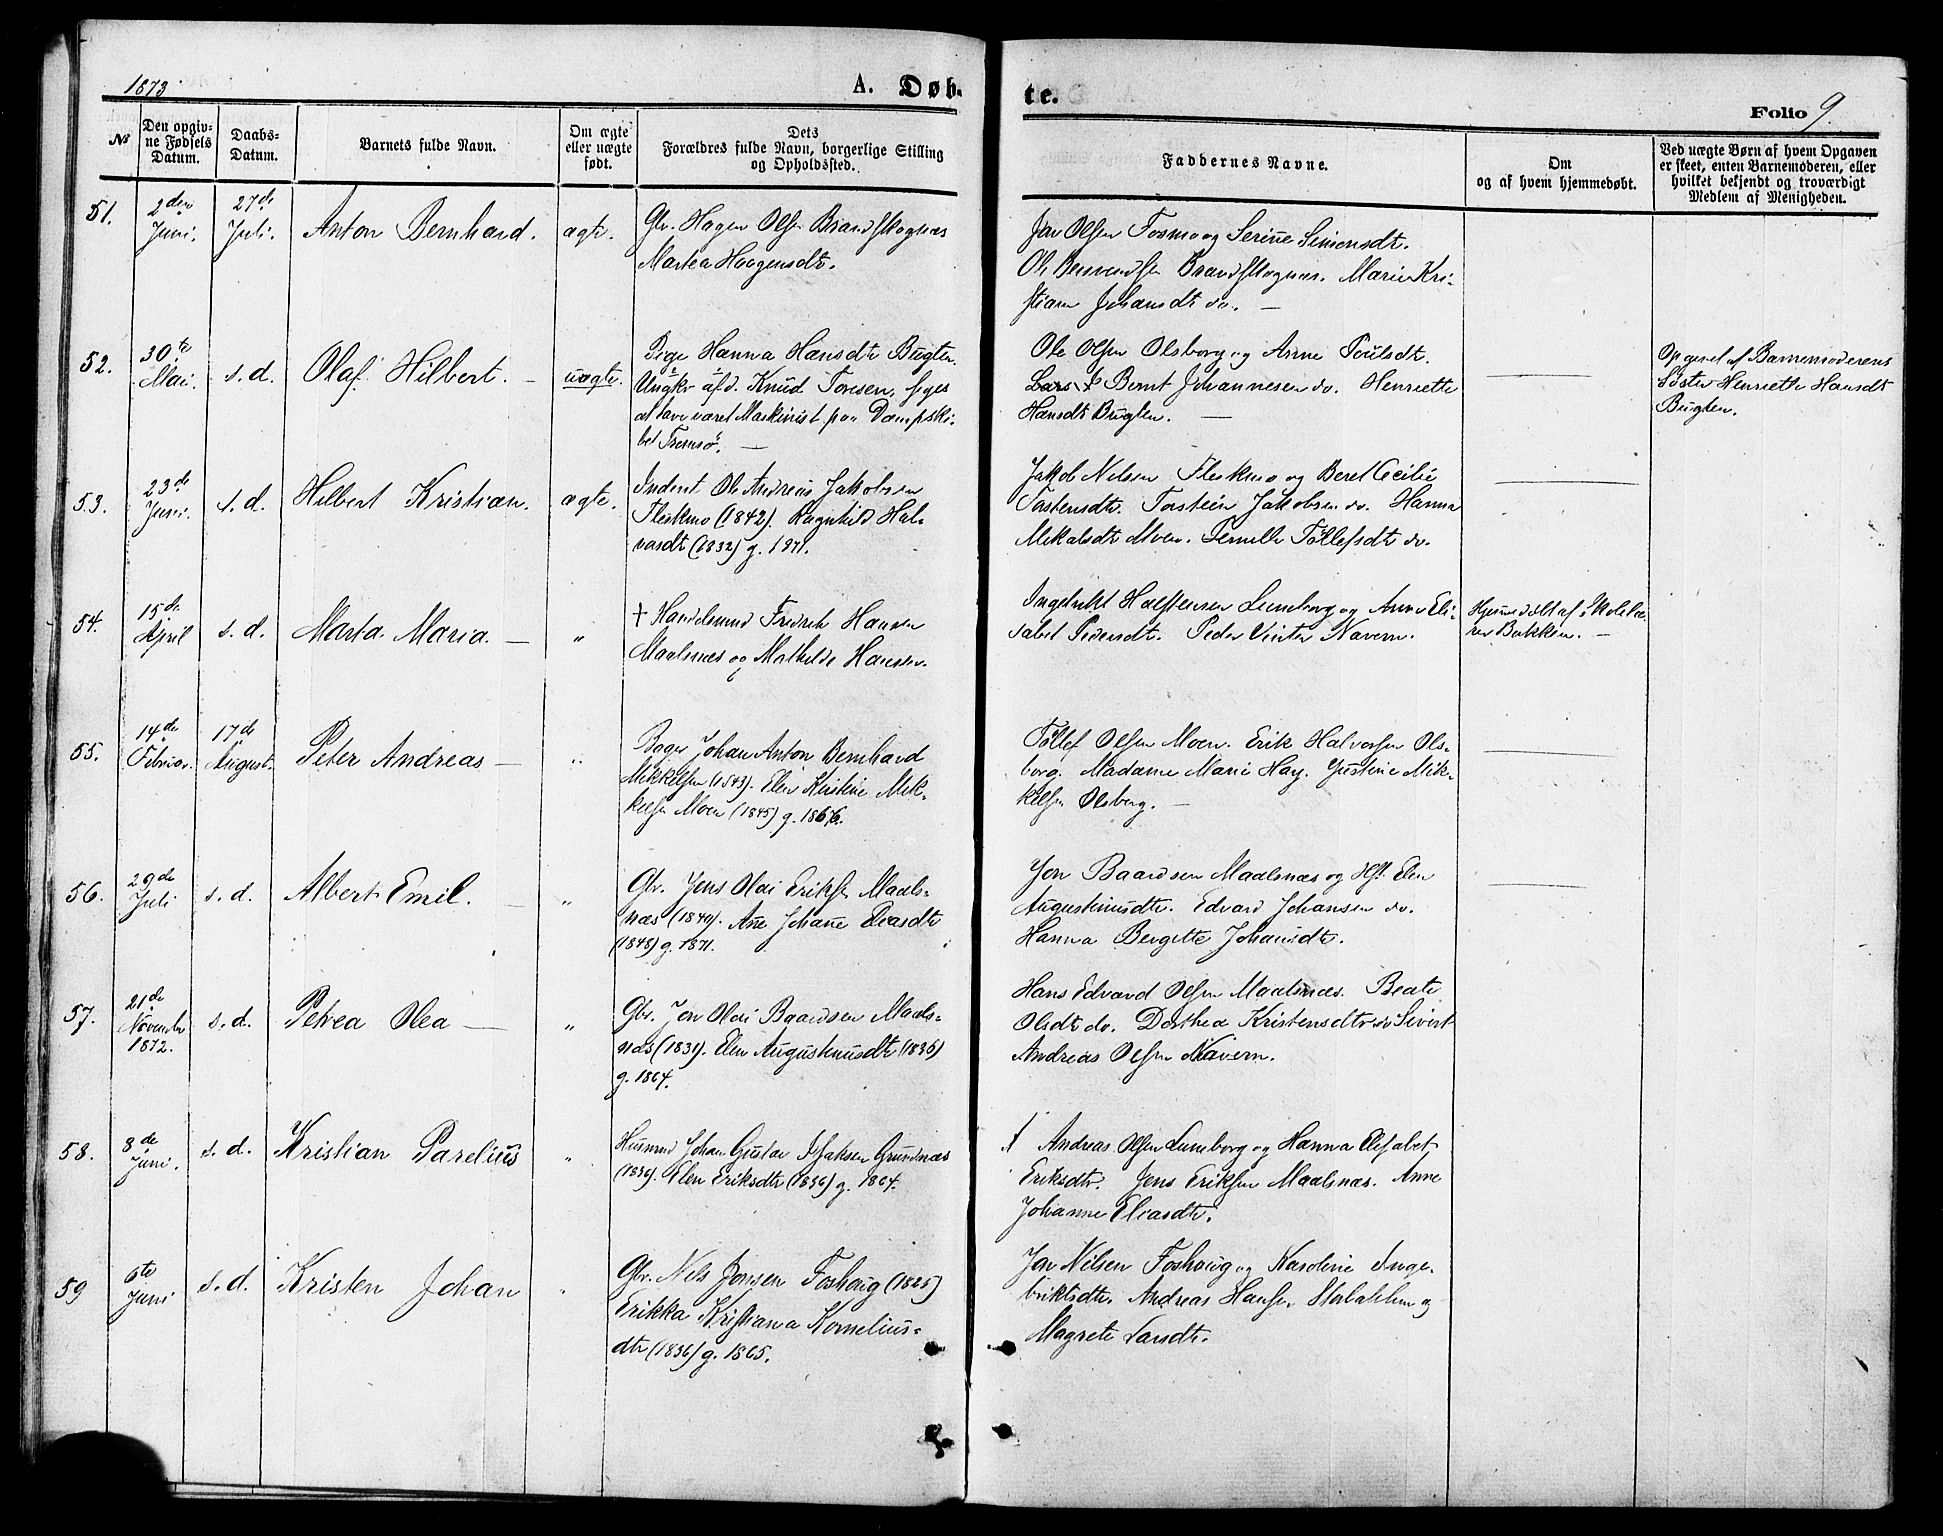 1873
A. Døb-
te.
Folio 9.
№
Den opgiv-
ne Fødsels
Datum.
Daabs-
Datum.
Barnets fulde Navn.
Om ægte
eller uægte
født.
Dets
Forældres fulde Navn, borgerlige Stilling
og Opholdssted.
Faddernes Navne.
Om
og af hvem hjemmedøbt.
Ved uægte Børn af hvem Opgaven
er skeet, enten Barnemoderen, eller
hvilket bekjendt og troværdigt
Medlem af Menigheden.
51.
2den
Juni.
27de
Juli.
Anton Bernhard.
ægte.
Gbr. Hagen Olsen Brandskognæs
Martea Haagensdtr.
Jon Olsen Fosmo og Serine Simonsdtr.
Brandskognæs. Marie Kri-
stiane Johansdtr do. —
52.
30te
Mai.
s.d.
Olaf Hilbert. —
uægte.
Pige Hanna Hansdtr Bugten.
Ungkr. Knud Toresen, siges
at have været Maskinist paa Dampski-
bet Tromsø. —
Ole Olsen Olsborg og Anne Poulsdtr.
Bernt Johannesen do. Henriette
Hansdtr Bugten. —
Opgivet af Barnemoderens
Søster Henriette Hansdtr
Bugten.
53.
23de
Juni.
s.d.
Hilbert Kristian.
ægte.
Inderst Ole Andreas Jakobsen
Fleskmo (1842). Ragnhild Hal-
vardtr (1832) g. 1871.
Jakob Nilsen Fleskmo og Beret Cecilie
Torstensdtr. Torstein Jakobsen do. Hanna
Mikalsdtr Moen. Pernille Tollefsdtr do.
54.
15de
April
s.d.
Marta Maria. —
"
† Handelsmd Fredrik Hansen
Maalsnæs og Mathilde Hansen.
Ingebrikt Halstensen Luneborg og Anne Eli-
sabet Pedersdtr. Peder Vinter Navern.
Hjemmedøbt af Skolelæ-
rer Bakken. —
55.
14de
Februar.
17de
August.
Peter Andreas —
"
Bager Johan Anton Bernhard
Mikkelsen (1843). Elen Kristine Mik-
kelsen Moen (1845) g. 1866.
Tollef Olsen Moen. Erik Halvorsen Ols-
borg. Madame Marie Hay. Justine Mik-
kelsen Olsborg. —
56.
29de
Juli
s.d.
Albert Emil. —
"
Gbr. Jens Olai Eriksen Maals-
næs (1849). Ane Johane Eliasdtr
(1848) g. 1871.
Jon Baardsen Maalsnæs og Hst. Elen
Augustinusdtr. Edvard Johansen do.
Hanna Bergitte Johansdtr.
57.
21de
November
1872.
s.d.
Petrea Olea —
"
Gbr. Jon Olai Baardsen Maals-
næs (1831). Elen Augustinusdtr (1836)
g. 1864.
Hans Edvard Olsen Maalsnæs. Beate
Olsdtr do. Dorthea Kristensdtr do Sivert
Andreas Olsen Navern.
58.
8de
Juni.
s.d.
Kristian Parelius
"
Husmd Johan Gustav Isaksen Grundnæs
(1839). Elen Eriksdtr (1836) g. 1864.
Andreas Olsen Luneborg og Hanna Elisabet
Eriksdtr. Jens Eriksen Maalsnæs. Anne
Johanne Eliasdtr.
59
6te
Juni
s.d.
Kristen Johan
"
Gbr. Nils Jonsen Foshaug (1825)
Erikka Kristiana Kornelius-
dtr (1836) g. 1865.
Jon Nilsen Foshaug og Karoline Inge-
briktsdtr. Andreas Hansen Storbakken og
Magrete Larsdtr.